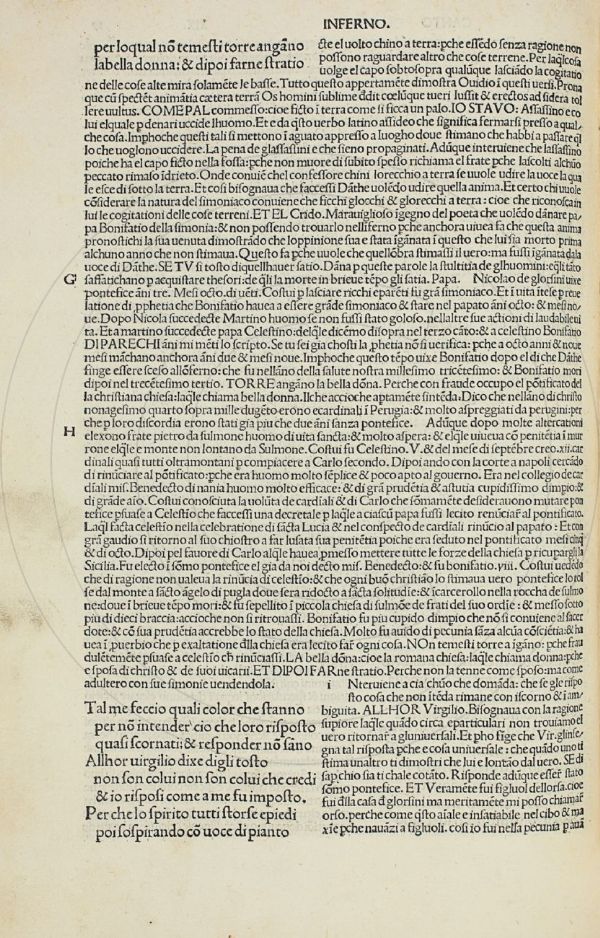 INFERNO.
per loqual nō temesti torre angāno
la bella donna: & dipoi farne stratio
cte el uolto chino a terra: pche essēdo senza ragione non
possono raguardare altro che cose terrene. Per laqlcosa
uolge el capo sobtosopra qualūque lasciādo la cogitatio
ne delle cose alte mira solamēte le basse. Tutto questo appertamēte dimostra Ouidio ī questi uersi. Prona
que cū spectēt animātia cætera terrā Os homini sublime
lere uultus. COME PAL commesso: cioe ficto ī terra come si ficca un palo. IO STAVO: Assassino e co
lui elquale p denari uccide lhuomo. Et e da q̄sto uerbo latino assideo che significa fermarsi presso a qual
che cosa. Imphoche questi tali si mettono ī aguato appresso a luogho doue stimano che habbi a passare q̄l
lo che uoglono uccidere. La pena de glassassini e che sieno propaginati. Adūque interuiene che lassassino
poiche ha el capo ficto nella fossa: pche non muore di subito spesso richiama el frate pche lascolti alchūo
peccato rimaso īdrieto. Onde conuiē chel confessore chini lorecchio a terra se uuole udire la uoce la qua
le esce di sotto la terra. Et cosi bisognaua che facessi Dāthe uolēdo udire quella anima. Et certo chi uuole
cōsiderare la natura del simoniaco conuiene che ficchi glocchi & glorecchi a terra: cioe che riconosca in
lui le cogitationi delle cose terreni. ET EL Crido. Marauiglioso īgegno del poeta che uolēdo dānare pa
pa Bonifatio della simonia: & non possendo trouarlo nellinferno pche anchora uiuea fa che questa anima
pronostichi la sua uenuta dimostrādo che loppinione sua e stata īganata ī questo che lui sia morto prima
alchuno anno che non stimaua. Questo fa pche uuole che quellōbra stimassi il uero: ma fussi īganata dala
uoce di Dāthe. SE TV si tosto di quellhauer satio. Dāna p queste parole la stultitia de glhuomini: eq̄li tāto
G saffatichano p acquistare thesori: de q̄li la morte in brieue tēpo gli satia. Papa. Nicolao de glorsini uixe
pontefice āni tre. Mesi octo. di uēti. Costui p lasciare ricchi eparēti fu grā simoniaco. Et ī uita itese p reue
latione di pphetia che Bonifatio hauea a essere grāde simoniaco & stare nel papato āni octo: & mesi no
ue. Dopo Nicola succedecte Martino huomo se non fussi stato goloso, nellaltre sue actioni di laudabile uī
ta. Et a martino succedecte papa Celestino: delq̄le dicēmo disopra nel terzo cāto: & a celestino Bonifatio
DI PARECHI āni mi mētì lo scripto. Se tu sei gia chosti la pphetia nō si uerifica: pche a octo anni & noue
mesi māchano anchora āni due & mesi noue. Imphoche questo tēpo uixe Bonifatio dopo el di che Dāthe
singe essere sceso allōferno: che fu nellāno della salute nostra millesimo tricētesimo: & Bonifatio mori
dipoi nel trecētesimo tertio. TORRE angāno la bella dōna. Perche con fraude occupo el pōtificato del
la christiana chiesa: laq̄le chiama bella donna. Ilche accioche aptamēte sintēda: Dico che nellāno di christo
nonagesimo quarto sopra mille dugēto erono ecardinali ī Perugia: & molto aspreggiati da perugini: per
che p loro discordia erono stati gia piu che due āni sanza pontefice. Adūque dopo molte altercationi
H elexono frate pietro da sulmone huomo di uita sancta: & molto aspera: & elq̄le uiueua cō penitētia ī mur
rone elq̄le e monte non lontano da Sulmone. Costui fu Celestino. V. & del mese di septēbre creo .xii. car
dinali quasi tutti oltramontani p compiacere a Carlo secondo. Dipoi ando con la corte a napoli cercādo
di rinūciare al pōtificato: pche era huomo molto sēplice & poco apto al gouerno. Era nel collegio de car
diali mis. Benedecto di nania huomo molto efficace: & di grā prudētia & astutia cupidissimo dimpio: &
di grāde aīo. Costui conosciuta la uolūta de cardiali & di Carlo che sōmamēte desiderauono mutare pon
tefice psuase a Celestīo che facessi una decretale p laq̄le a ciascū papa fussi lecito renuciare al pontificato.
Laq̄l facta celestīo nella celebratione di sācta Lucia & nel conspecto de cardiali rinūcio al papato: Et con
grā gaudio si ritorno al suo chiostro a far lusata sua penitētia poiche era seduto nel pontificato mesi cinq̄
& di octo. Dipoi pel fauore di Carlo alq̄le hauea pmesso mettere tutte le forze della chiesa p ricupargli la
Sicilia. Fu electo ī sōmo pontefice el gia da noi decto mis. Benedecto: & fu bonifatio. viii. Costui uededo
che di ragione non ualeua la rinūcia di celestīo: & che ogni buō christiāo lo stimaua uero pontefice lo tol
se dal monte a sācto āgelo di pugla doue sera ridocto a sācta solitudīe: & īcarcerollo nella roccha de sulmo
ne: doue ī brieue tēpo mori: & fu sepellito ī piccola chiesa di sulmōe de frati del suo ordīe: & messo sotto
piu di dieci braccia: accioche non si ritrouassi. Bonifatio fu piu cupido dimpio che nō si conuiene al sacer
dote: & cō sua prudētia accrebbe lo stato della chiesa. Molto fu auido di pecunia sāza alcūa cōsciētia: & ha
uea ī puerbio che p exaltatione dlla chiesa era lecito far ogni cosa. NOn temesti torre a īgano: pche frau
dulētemēte psuase a celestīo ch rinūciassi. LA bella dōna: cioe la romana chiesa: laq̄le chiama donna: pche
e sposa di christo & de suoi uicarii. ET DIPOI FARne stratio. Perche non la tenne come sposo: ma come
adultero con sue simonie uendendola.
Tal me feccio quali color che stanno
per nō intender cio che loro risposto
quasi scornati: & responder nō sāno
Allhor uirgilio dixe digli tosto
non son colui non son colui che credi
& io risposi come a me fu imposto.
Per che lo spirito tutti storse epiedi
poi sospirando cō uoce di pianto
i Nteruiene a cia chūo che domāda: che se gle rispo
sto cosa che non itēda rimane con iscorno & i am
bigulta. ALLHOR Virgilio. Bisognaua con la ragione
supiore laq̄le quādo circa eparticulari non trouiamo el
uero ritornar a gluniuersali. Et pho fīge che Vir. glinse
gna tal risposta pche e cosa uniuersale: che quādo uno ti
stima unaltro ti dimostri che lui e lontāo dal uero. SE di
sap chio sia ti chale cotāto. Risponde adūque esser stato
sōmo pontefice. ET Veramēte fui figluol dellorsa. cioe
fui dlla casa d glorsini ma meritamēte mi posso chiamar
orso. perche come q̄sto aīale e insatiabile nel cibo & ma
xīe pche nauāzi a figluoli. cosi io fui nella pecunia p auā